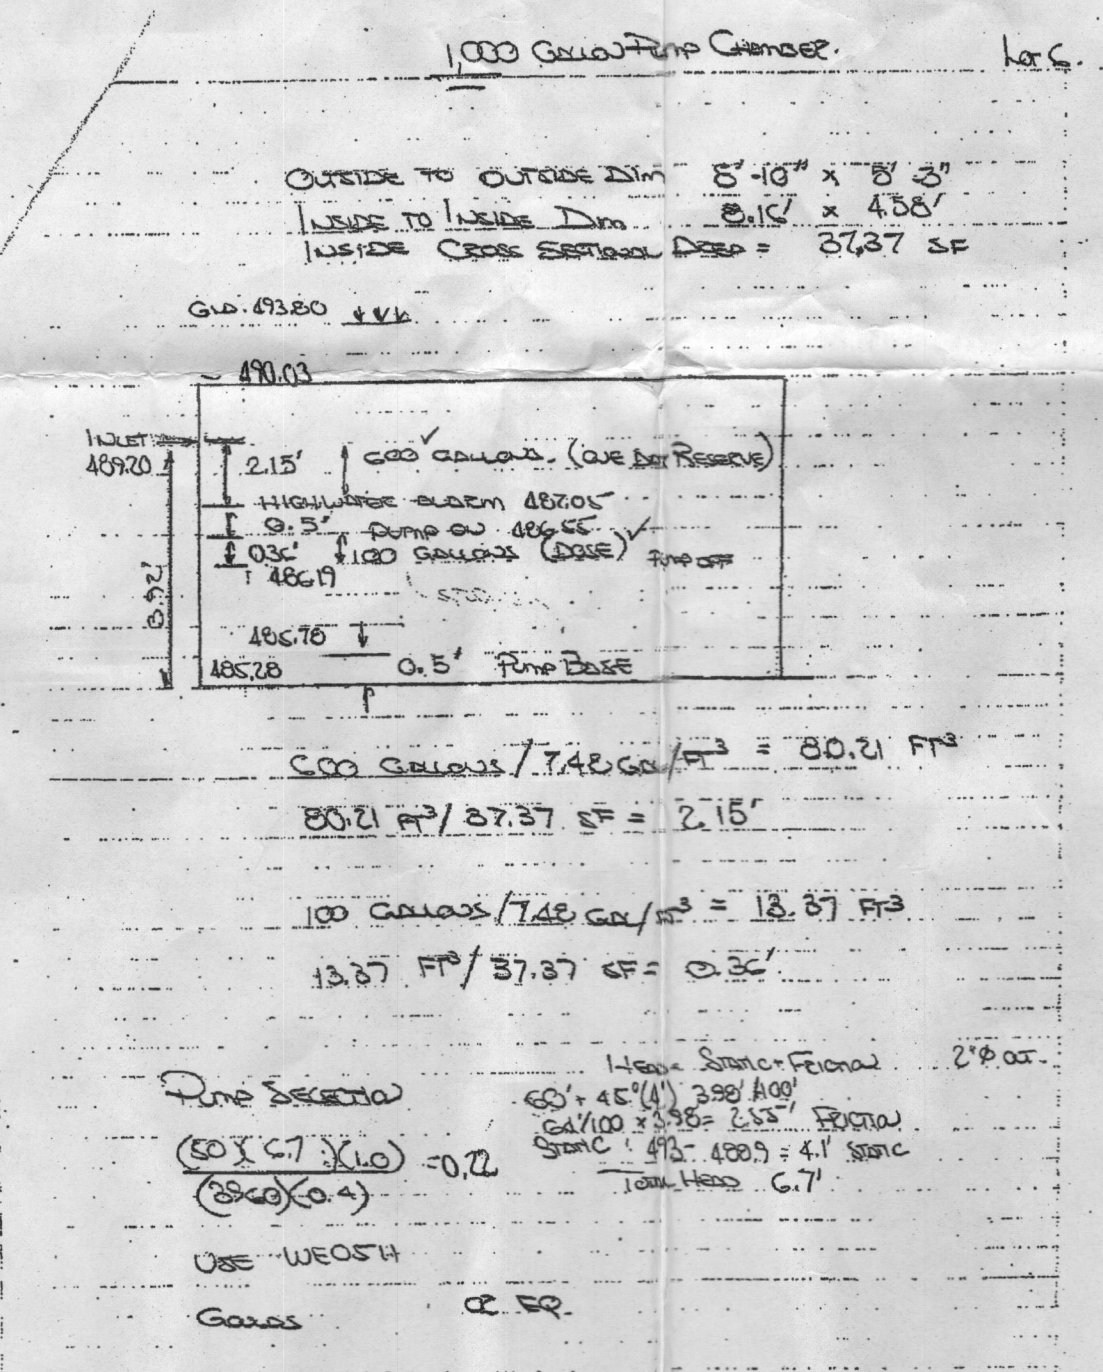 1,000 GALLON PUMP CHAMBER. LOT 6.
OUTSIDE TO OUTSIDE DIM 8'-10" x 5'-3"
INSIDE TO INSIDE DIM 8.16' x 4.58'
INSIDE CROSS SECTIONAL = 37.37 SF
GRD. 493.80
490.03
INLET
489.20
2.15' 600 GALLONS. (ONE DAY RESERVE)
HIGHWATER ALARM 487.05
0.5' PUMP ON 486.55
0.36' 100 GALLONS (DOSE) PUMP OFF
486.19
3.92'
485.78
485.28 0.5' PUMP BASE
600 GALLONS / 7.48 GAL/FT³ = 80.21 FT³
80.21 FT³ / 37.37 SF = 2.15'
100 GALLONS / 7.48 GAL/FT³ = 13.37 FT³
13.37 FT³ / 37.37 SF = 0.36'
PUMP SELECTION
HEAD = STATIC + FRICTION 2"Ø
60' + 45°(4') 3.98'/100'
64'/100 x 3.98 = 2.55' FRICTION
STATIC : 493 - 488.9 = 4.1' STATIC
TOTAL HEAD 6.7'
(50)(6.7)(1.0) = 0.22
(3960)(0.4)
USE WE05H
GOULDS OR EQ.